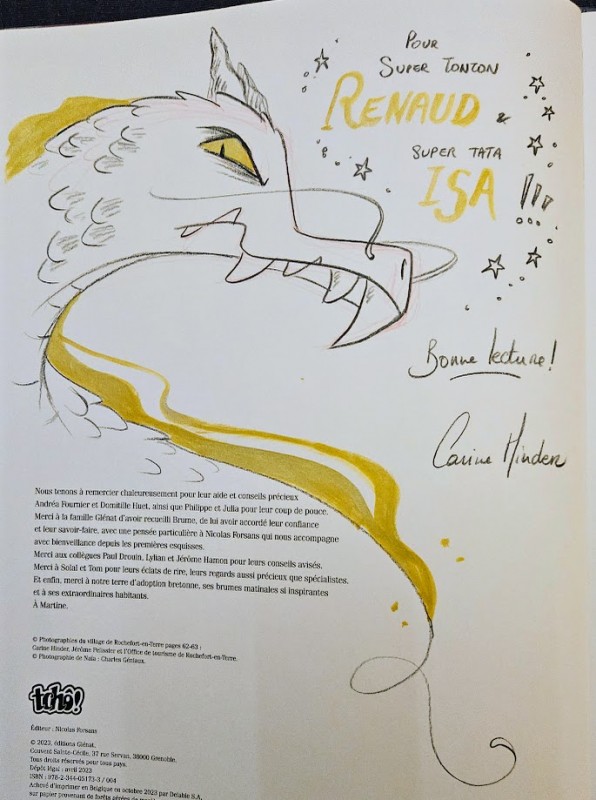 Pour
Super Tonton
RENAUD &
SUPER TATA
ISA !!!
Bonne lecture !
Carine Hinder
Nous tenons à remercier chaleureusement pour leur aide et conseils précieux
Andréa Fournier et Domitille Huet, ainsi que Philippe et Julia pour leur coup de pouce.
Merci à la famille Glénat d'avoir recueilli Brume, de lui avoir accordé leur confiance
et leur savoir-faire, avec une pensée particulière à Nicolas Forsans qui nous accompagne
avec bienveillance depuis les premières esquisses.
Merci aux collègues Paul Drouin, Lylian et Jérôme Hamon pour leurs conseils avisés.
Merci à Solal et Tom pour leurs éclats de rire, leurs regards aussi précieux que spécialistes.
Et enfin, merci à notre terre d'adoption bretonne, ses brumes matinales si inspirantes
et à ses extraordinaires habitants.
À Martine.
© Photographies du village de Rochefort-en-Terre pages 62-63 :
Carine Hinder, Jérôme Pélissier et l'Office de tourisme de Rochefort-en-Terre.
© Photographie de Naïa : Charles Géniaux.
tchô!
Éditeur : Nicolas Forsans
© 2023, éditions Glénat,
Couvent Sainte-Cécile, 37 rue Servan, 38000 Grenoble.
Tous droits réservés pour tous pays.
Dépôt légal : avril 2023
ISBN : 978-2-344-05173-3 / 004
Achevé d'imprimer en Belgique en octobre 2023 par Delabie S.A.,
sur papier provenant de forêts gérées de